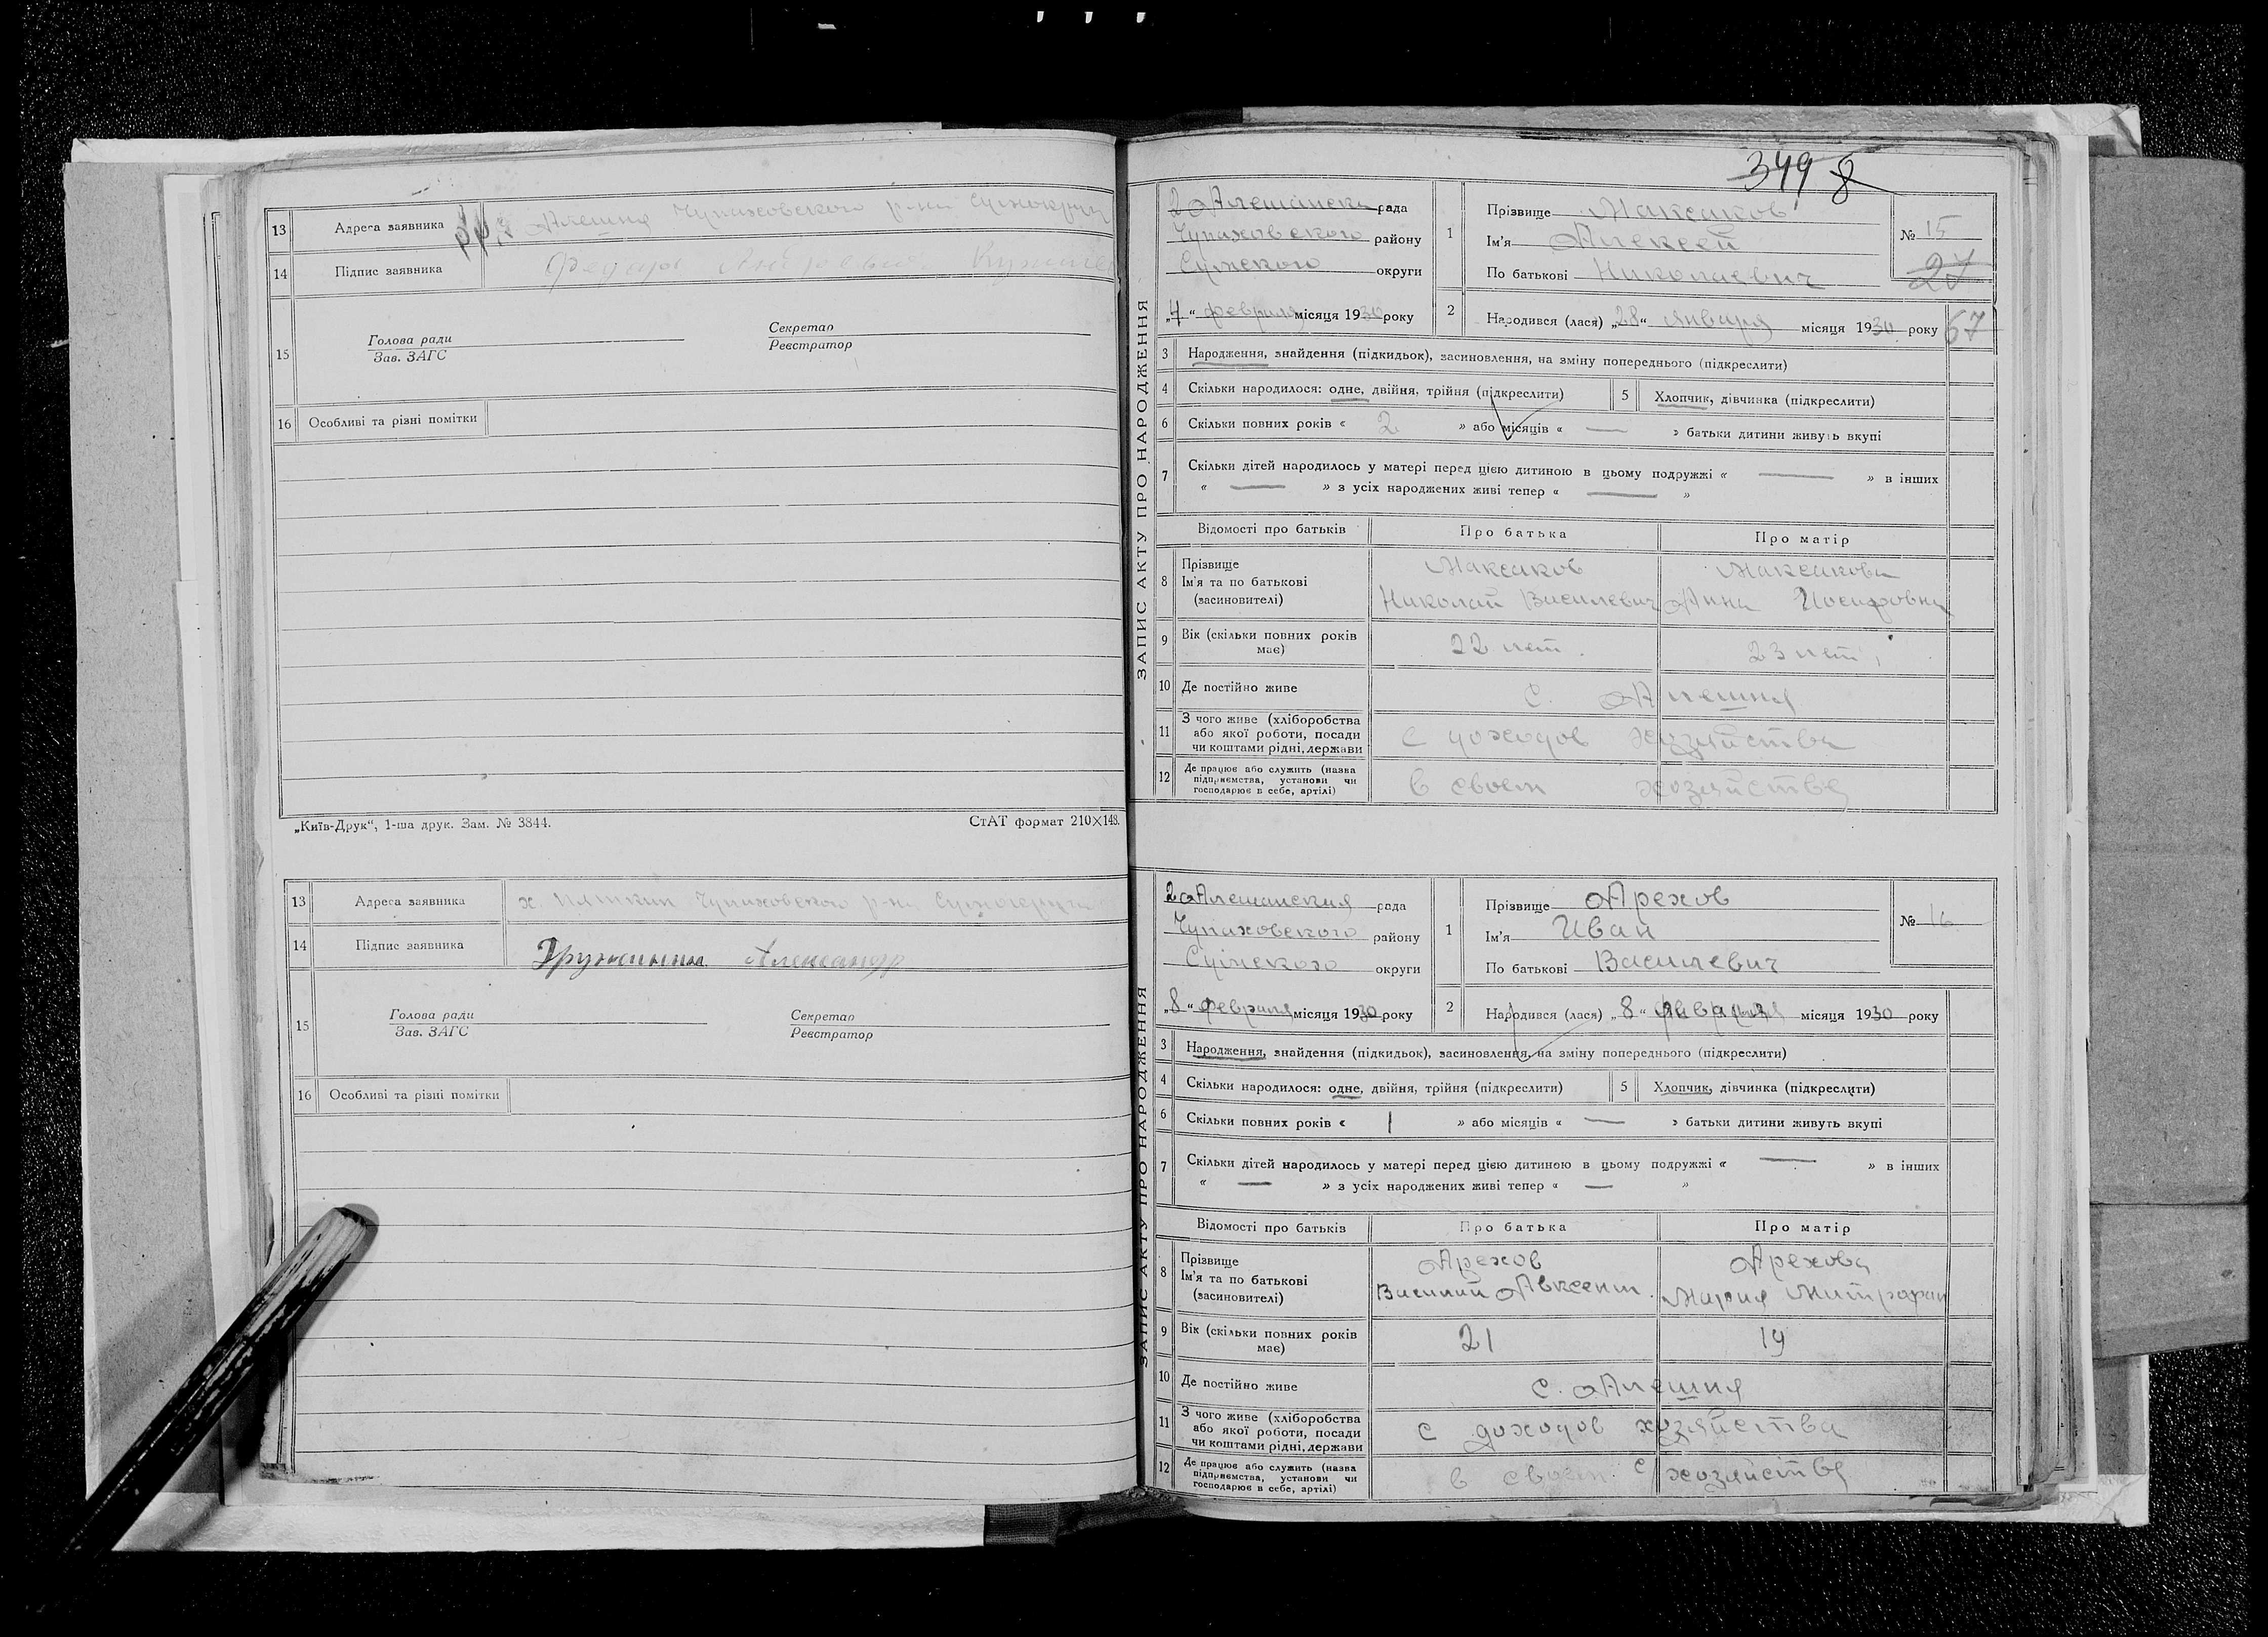 13 Адреса заявника Алешня Чупаховского р-на
14 Підпис заявника Федор
15 Голова ради Секретар
Зав. ЗАГС Реєстратор
16 Особливі та різні помітки
„Київ-Друк“, 1-ша друк. Зам. № 3844. СтАТ формат 210×148.
13 Адреса заявника х. Пяткин Чупаховского р-на
14 Підпис заявника Дружинин Александр
15 Голова ради Секретар
Зав. ЗАГС Реєстратор
16 Особливі та різні помітки
349 8
ЗАПИС АКТУ ПРО НАРОДЖЕННЯ
2 Алешанска рада
Чупаховского району
Сумского округи
„4“ февраля місяця 1930 року
1 Прізвище Максаков
Ім'я Алексей
По батькові Николаевич
№ 15
27
2 Народився (лася) „28“ января місяця 1930 року
67
3 Народження, знайдення (підкидьок), засиновлення, на зміну попереднього (підкреслити)
4 Скільки народилося: одне, двійня, трійня (підкреслити) 5 Хлопчик, дівчинка (підкреслити)
6 Скільки повних років « 2 » або місяців « — » батьки дитини живуть вкупі
7 Скільки дітей народилось у матері перед цією дитиною в цьому подружжі « — » в інших
« — » з усіх народжених живі тепер « — »
Відомості про батьків Про батька Про матір
8 Прізвище Максаков Максакова
Ім'я та по батькові
(засиновителі) Николай Василевич Анна Иосифовна
9 Вік (скільки повних років має) 22 лет. 23 лет,
10 Де постійно живе с. Алешня
11 З чого живе (хліборобства
або якої роботи, посади
чи коштами рідні, держави с доходов хозяйства
12 Де працює або служить (назва
підприємства, установи чи
господарює в себе, артілі) в своем хозяйстве
ЗАПИС АКТУ ПРО НАРОДЖЕННЯ
2 Алешанская рада
Чупаховского району
Сумского округи
„8“ февраля місяця 1930 року
1 Прізвище Арехов
Ім'я Иван
По батькові Василевич
№ 16
2 Народився (лася) „8“ місяця 1930 року
3 Народження, знайдення (підкидьок), засиновлення, на зміну попереднього (підкреслити)
4 Скільки народилося: одне, двійня, трійня (підкреслити) 5 Хлопчик, дівчинка (підкреслити)
6 Скільки повних років « 1 » або місяців « — » батьки дитини живуть вкупі
7 Скільки дітей народилось у матері перед цією дитиною в цьому подружжі « — » в інших
« — » з усіх народжених живі тепер « — »
Відомості про батьків Про батька Про матір
8 Прізвище Арехов Арехова
Ім'я та по батькові
(засиновителі) Василий Авксент. Мария Митрофан
9 Вік (скільки повних років має) 21 19
10 Де постійно живе с. Алешня
11 З чого живе (хліборобства
або якої роботи, посади
чи коштами рідні, держави с доходов хозяйства
12 Де працює або служить (назва
підприємства, установи чи
господарює в себе, артілі) в своем с/хозяйстве